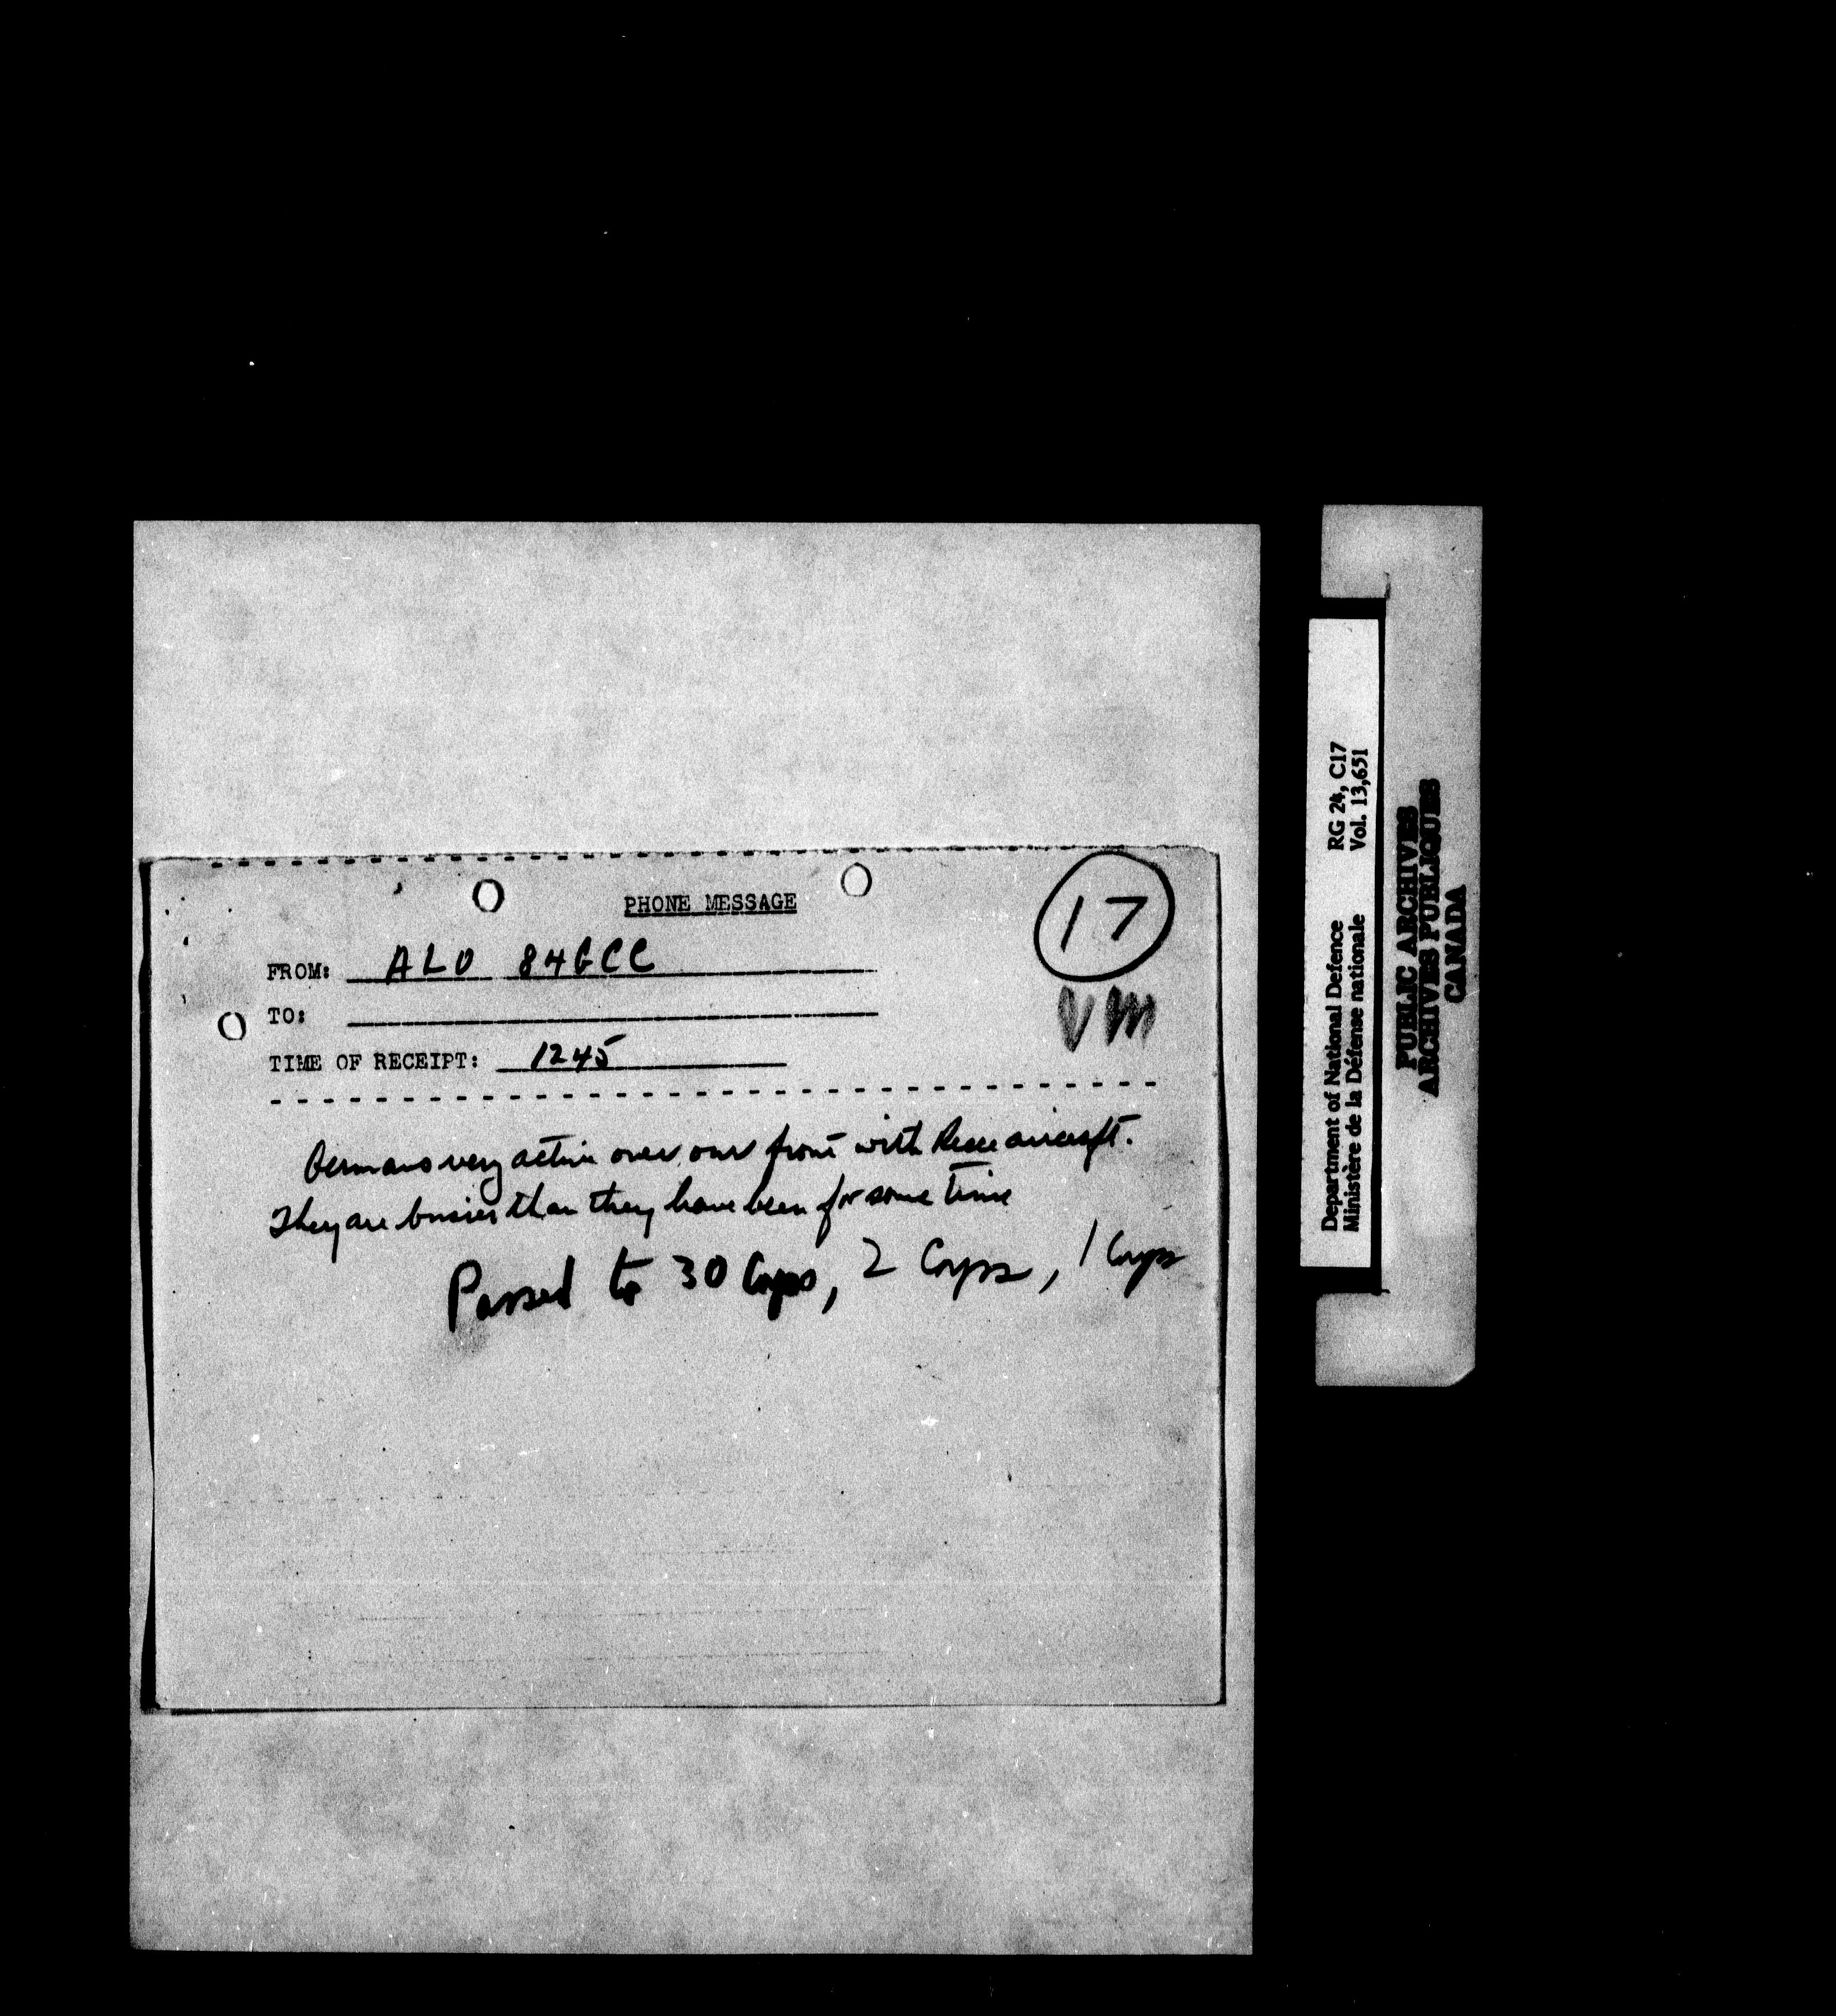 PHONE MESSAGE
17
FROM: ALO 84GCC
TO:
VM
TIME OF RECEIPT: 1245
Germans very active over our front with Recce aircraft.
They are busier than they have been for some time
Passed to 30 Corps, 2 Corps, 1 Corps
Department of National Defence RG 24, C17
Ministère de la Défense nationale Vol. 13,651
PUBLIC ARCHIVES
ARCHIVES PUBLIQUES
CANADA